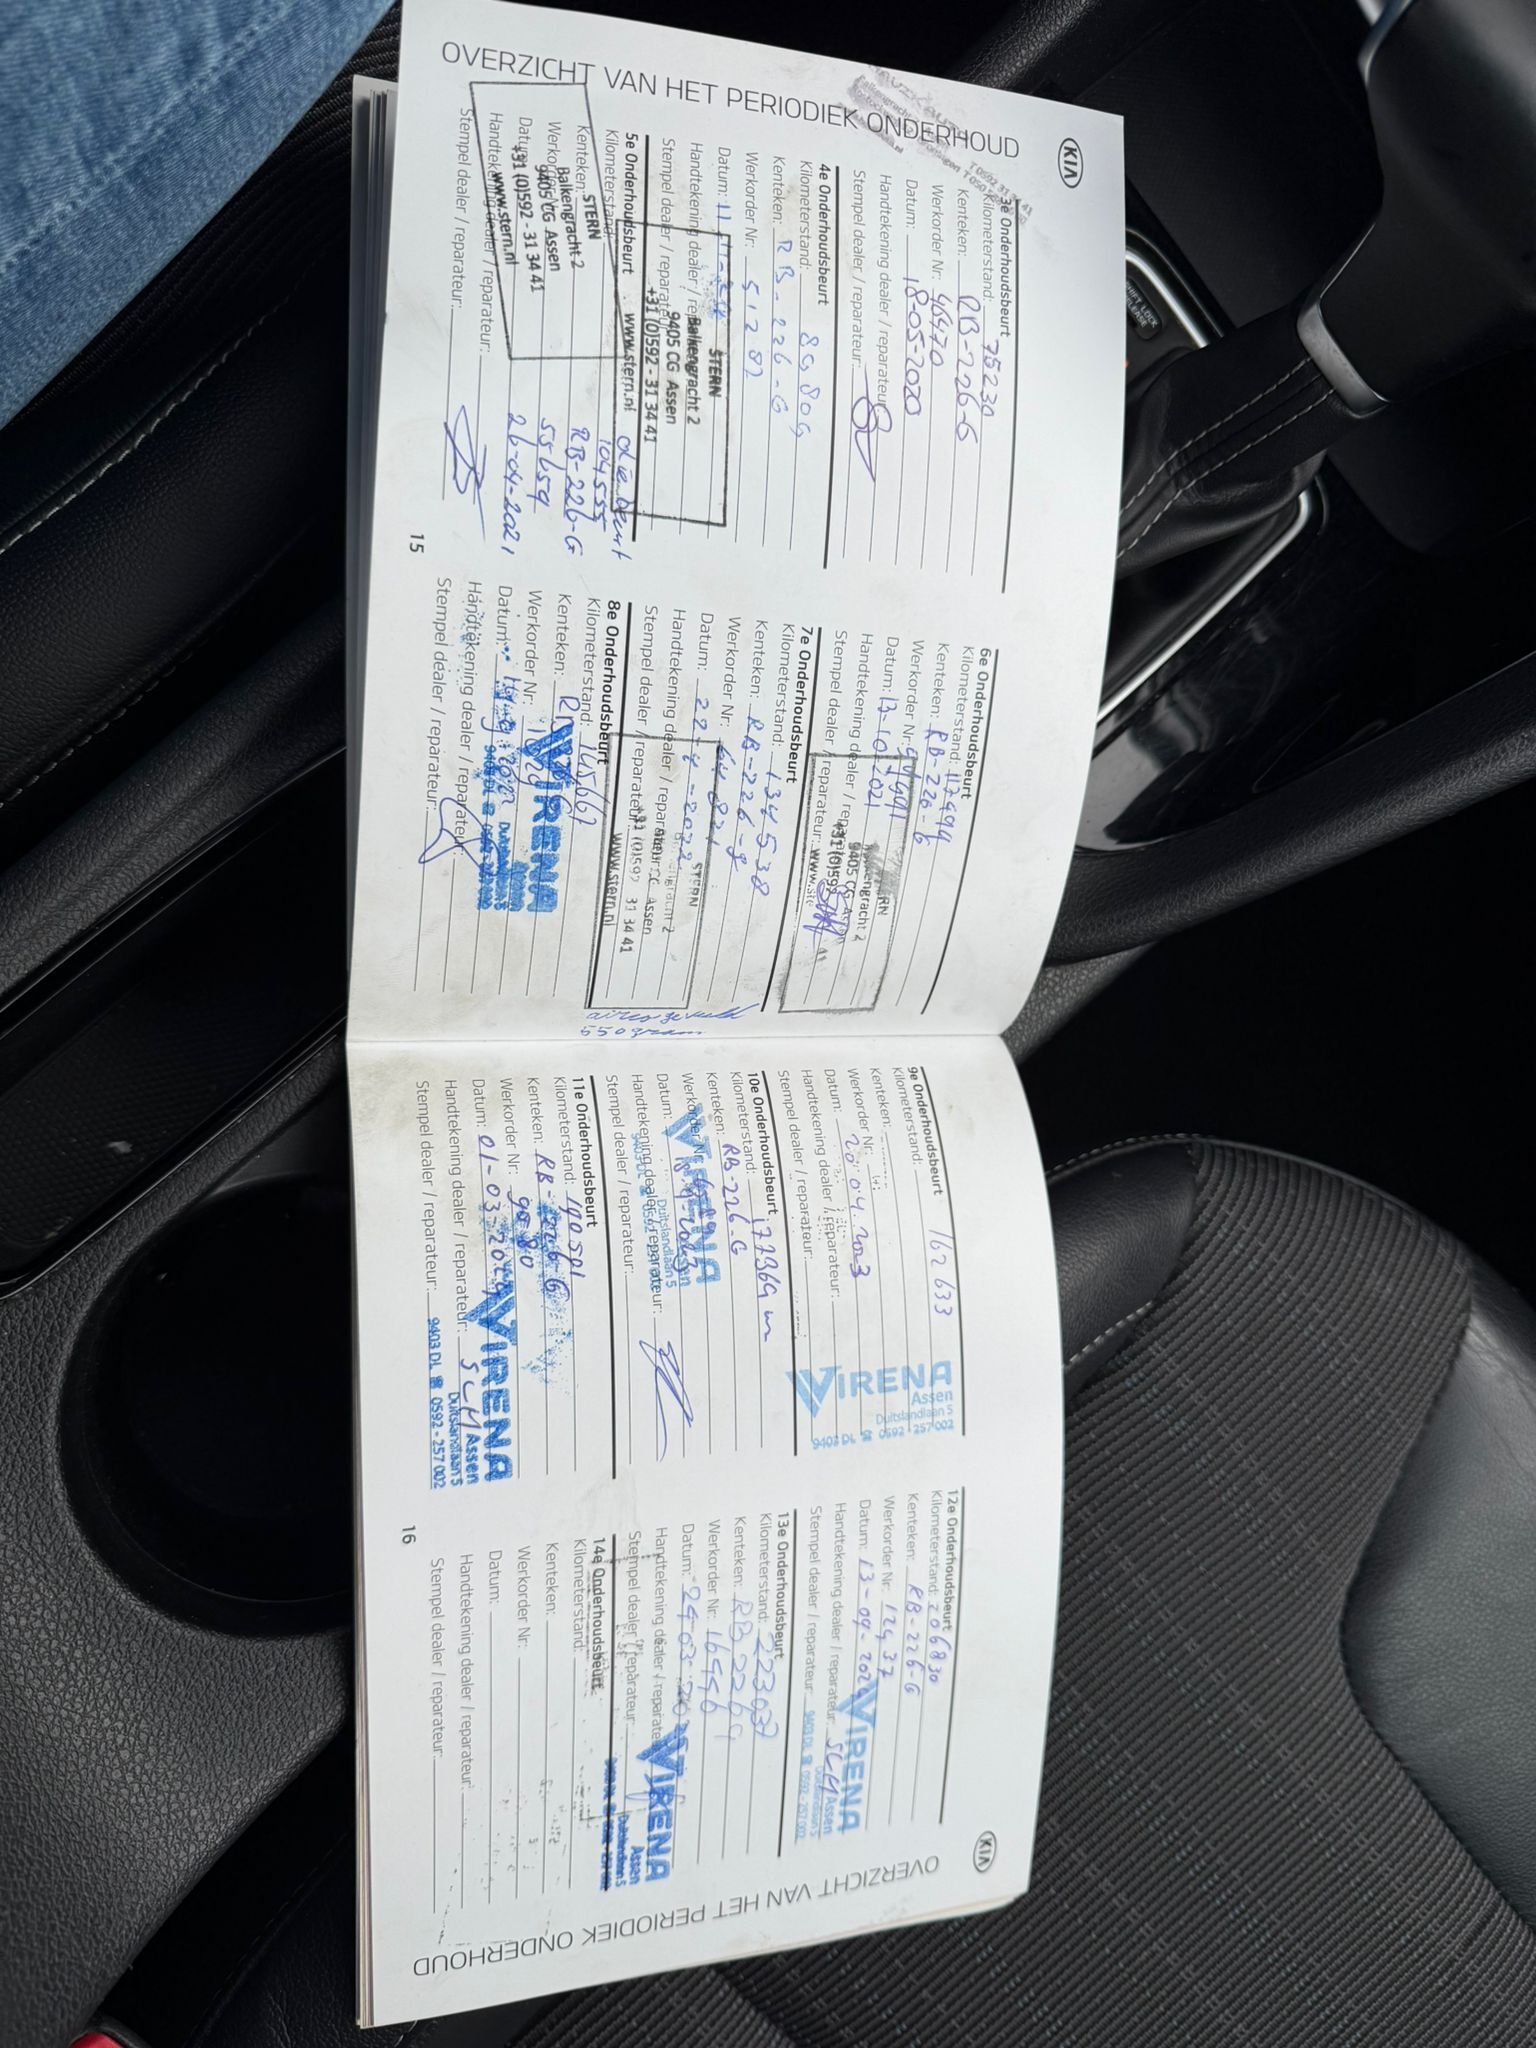 OVERZICHT VAN HET PERIODIEK ONDERHOUD
KIA
3e Onderhoudsbeurt
Kilometerstand: 75230
Kenteken: RB-226-G
Werkorder Nr: 46470
Datum: 18-05-2020
Handtekening dealer / reparateur:
Stempel dealer / reparateur:
4e Onderhoudsbeurt
Kilometerstand: 89809
Kenteken: RB-226-G
Werkorder Nr: 51282
Datum: 11-11-
Handtekening dealer / reparateur:
Stempel dealer / reparateur:
STERN
Balkengracht 2
9405 CG Assen
+31 (0)592 - 31 34 41
www.stern.nl
5e Onderhoudsbeurt
Kilometerstand: 104555
Kenteken: RB-226-G
Werkorder Nr: 55659
Datum: 26-04-2021
Handtekening dealer / reparateur:
Stempel dealer / reparateur:
STERN
Balkengracht 2
9405 CG Assen
+31 (0)592 - 31 34 41
www.stern.nl
15
6e Onderhoudsbeurt
Kilometerstand: 117494
Kenteken: RB-226-G
Werkorder Nr:
Datum: 13-10-2021
Handtekening dealer / reparateur:
Stempel dealer / reparateur:
Balkengracht 2
9405 CG Assen
7e Onderhoudsbeurt
Kilometerstand: 134538
Kenteken: RB-226-g
Werkorder Nr: 64821
Datum: 22-4-2022
Handtekening dealer / reparateur:
Stempel dealer / reparateur:
STERN
Balkengracht 2
9405 CG Assen
+31 (0)592 31 34 41
www.stern.nl
airco gevuld
550 gram
8e Onderhoudsbeurt
Kilometerstand: 145661
Kenteken:
Werkorder Nr:
Datum:
Handtekening dealer / reparateur:
Stempel dealer / reparateur:
VIRENA
Duitslandlaan 5
9e Onderhoudsbeurt
Kilometerstand: 162633
Kenteken:
Werkorder Nr:
Datum: 20.04.2023
Handtekening dealer / reparateur:
Stempel dealer / reparateur:
VIRENA
Assen
Duitslandlaan 5
9403 DL ☎ 0592 - 257 002
10e Onderhoudsbeurt
Kilometerstand: 177369
Kenteken: RB-226-G
Werkorder Nr:
Datum:
Handtekening dealer / reparateur:
Stempel dealer / reparateur:
VIRENA
Assen
Duitslandlaan 5
11e Onderhoudsbeurt
Kilometerstand: 190501
Kenteken: RB-226-G
Werkorder Nr: 9080
Datum: 01-03-2024
Handtekening dealer / reparateur: SCH
Stempel dealer / reparateur:
VIRENA
Assen
Duitslandlaan 5
9403 DL ☎ 0592 - 257 002
16
12e Onderhoudsbeurt
Kilometerstand: 206830
Kenteken: RB-226-G
Werkorder Nr: 12437
Datum: 13-09-2024
Handtekening dealer / reparateur: SCH
Stempel dealer / reparateur:
VIRENA
Assen
Duitslandlaan 5
9403 DL ☎ 0592 - 257 002
13e Onderhoudsbeurt
Kilometerstand: 223037
Kenteken: RB226G
Werkorder Nr: 16996
Datum: 24-03-2025
Handtekening dealer / reparateur:
Stempel dealer / reparateur:
VIRENA
Assen
Duitslandlaan 5
14e Onderhoudsbeurt
Kilometerstand:
Kenteken:
Werkorder Nr:
Datum:
Handtekening dealer / reparateur:
Stempel dealer / reparateur:
KIA
OVERZICHT VAN HET PERIODIEK ONDERHOUD